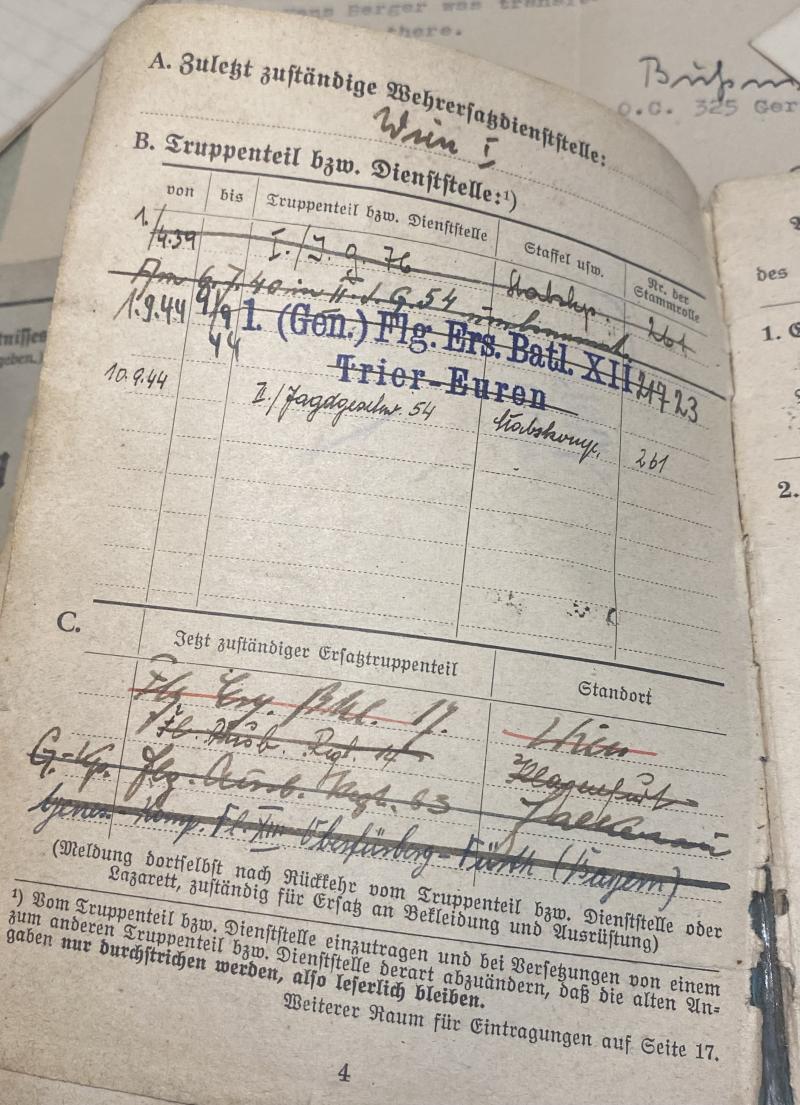 Berger was trans
there.
O.C. 325 Ger
A. Zuletzt zuständige Wehrersatzdienststelle:
Wien I
B. Truppenteil bzw. Dienststelle:¹)
von bis Truppenteil bzw. Dienststelle Staffel usw. Nr. der Stammrolle
1./4.39 I./J. G. 76 Stabskp. 261
Am 6.7.40 in II. J. G. 54 umbenannt.
1.9.44 9/9 44 1. (Gen.) Flg. Ers. Batl. XII 23
Trier-Euren
10.9.44 II./Jagdgeschw. 54 Stabskomp. 261
C.
Jetzt zuständiger Ersatztruppenteil Standort
17. Wien
Fl. Ausb. Rgt. 14 Klagenfurt
Flg. Ausb. Regt. 63
Genes. Komp. Fl. XIII Fürth (Bayern)
(Meldung dortselbst nach Rückkehr vom Truppenteil bzw. Dienststelle oder
Lazarett, zuständig für Ersatz an Bekleidung und Ausrüstung)
¹) Vom Truppenteil bzw. Dienststelle einzutragen und bei Versetzungen von einem
zum anderen Truppenteil bzw. Dienststelle derart abzuändern, daß die alten An=
gaben nur durchstrichen werden, also leserlich bleiben.
Weiterer Raum für Eintragungen auf Seite 17.
4
des
1.
2.